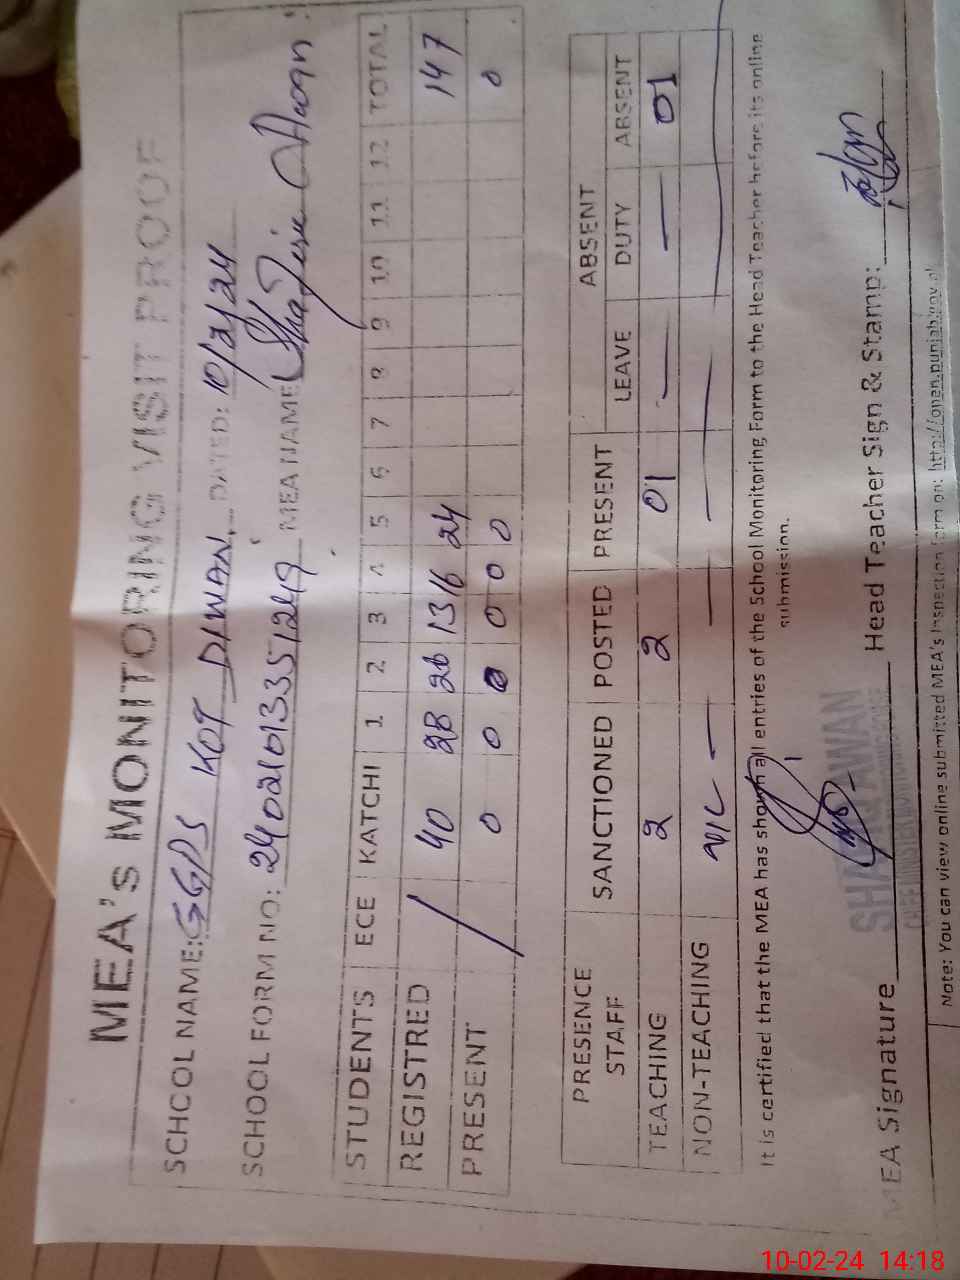 MEA's MONITORING VISIT PROOF
SCHOOL NAME: GGPS KOT DIWAN. DATED: 10/2/24
SCHOOL FORM NO: 24021013351249 MEA NAME: Shafiq Awan
STUDENTS ECE KATCHI 1 2 3 4 5 6 7 8 9 10 11 12 TOTAL
REGISTRED / 40 28 26 13 16 24 147
PRESENT 0 0 0 0 0 0 0
PRESENCE STAFF SANCTIONED POSTED PRESENT ABSENT
LEAVE DUTY ABSENT
TEACHING 2 2 01 — — 01
NON-TEACHING NIL — — — —
It is certified that the MEA has shown all entries of the School Monitoring Form to the Head Teacher before its online
submission.
SHAFIQ AWAN
MEA Signature Head Teacher Sign & Stamp:
Note: You can view online submitted MEA's Inspection Form on: http://open.punjab.gov.pk
10-02-24 14:18